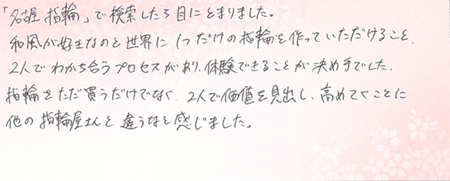 「名古屋 指輪」で検索したら目にとまりました。
和風が好きなのと世界に1つだけの指輪を作っていただけること、
2人でわかち合うプロセスがあり、体験できることが決め手でした。
指輪をただ買うだけでなく、2人で価値を見出し、高めてくことに
他の指輪屋さんと違うなと感じました。